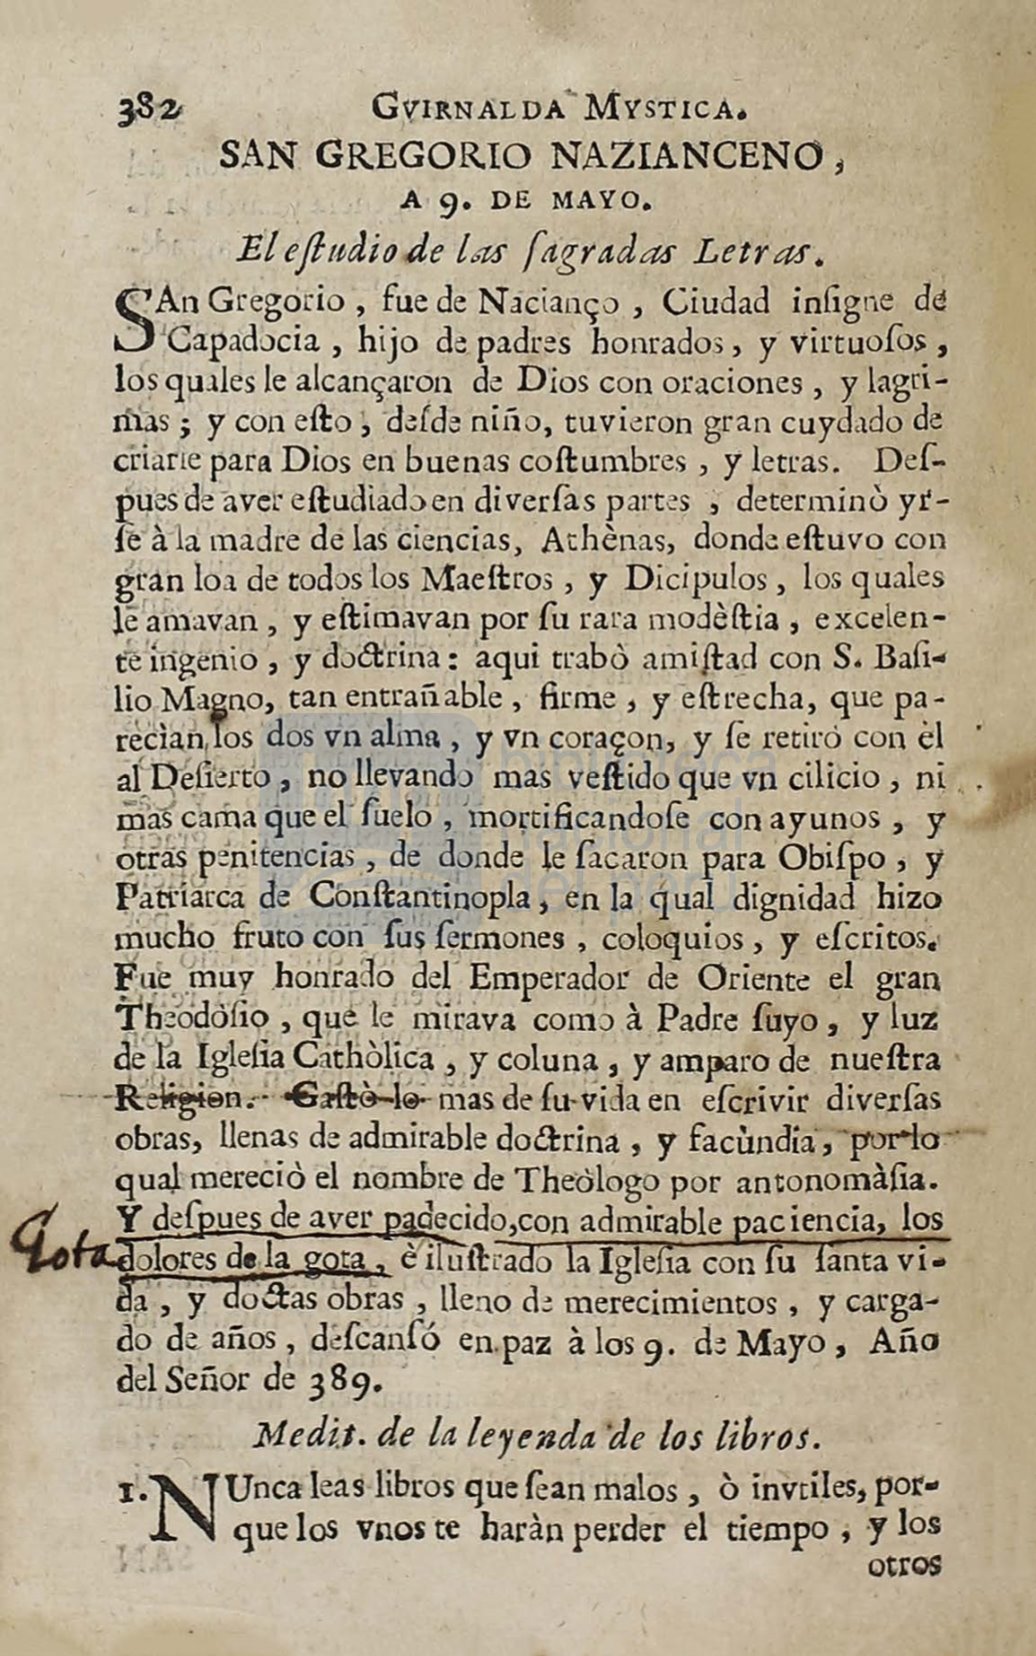 382 GVIRNALDA MYSTICA.
SAN GREGORIO NAZIANCENO,
A 9. DE MAYO.
El eſtudio de las ſagradas Letras.
SAn Gregorio, fue de Nacianço, Ciudad inſigne de
Capadocia, hijo de padres honrados, y virtuoſos,
los quales le alcançaron de Dios con oraciones, y lagri-
mas; y con eſto, deſde niño, tuvieron gran cuydado de
criarle para Dios en buenas coſtumbres, y letras. Deſ-
pues de aver eſtudiado en diverſas partes, determinò yr-
ſe à la madre de las ciencias, Athènas, donde eſtuvo con
gran loa de todos los Maeſtros, y Dicipulos, los quales
le amavan, y eſtimavan por ſu rara modèſtia, excelen-
te ingenio, y doctrina: aqui trabò amiſtad con S. Baſi-
lio Magno, tan entrañable, firme, y eſtrecha, que pa-
recìan los dos vn alma, y vn coraçon, y ſe retiró con èl
al Deſierto, no llevando mas veſtido que vn cilicio, ni
mas cama que el ſuelo, mortificandoſe con ayunos, y
otras penitencias, de donde le ſacaron para Obiſpo, y
Patriarca de Conſtantinopla, en la qual dignidad hizo
mucho fruto con ſus ſermones, coloquios, y eſcritos.
Fue muy honrado del Emperador de Oriente el gran
Theodòſio, que le mirava como à Padre ſuyo, y luz
de la Igleſia Cathòlica, y coluna, y amparo de nueſtra
Religion. Gaſtò lo mas de ſu vida en eſcrivir diverſas
obras, llenas de admirable doctrina, y facùndia, por lo
qual mereciò el nombre de Theòlogo por antonomàſia.
Y deſpues de aver padecido, con admirable paciencia, los
Gota dolores de la gota, è iluſtrado la Igleſia con ſu ſanta vi-
da, y doctas obras, lleno de merecimientos, y carga-
do de años, deſcanſó en paz à los 9. de Mayo, Año
del Señor de 389.
Medit. de la leyenda de los libros.
1. NUnca leas libros que ſean malos, ò invtiles, por-
que los vnos te haràn perder el tiempo, y los
otros
biblioteca
nacional